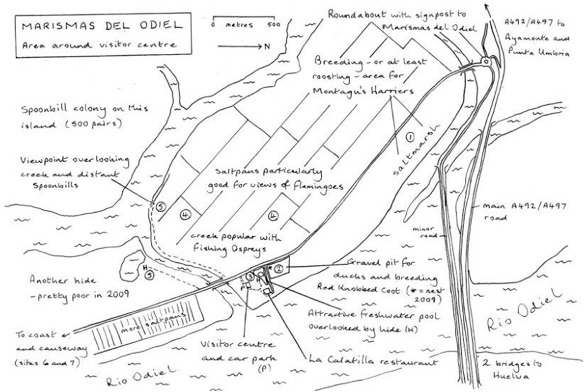 MARISMAS DEL ODIEL
Area around visitor centre
0 metres 500
N
Roundabout with signpost to
Marismas del Odiel
A492/A497 to
Ayamonte and
Punta Umbria
Breeding - or at least
roosting - area for
Montagu's Harriers
Spoonbill colony on this
island (500 pairs)
1
saltmarsh
Viewpoint overlooking
creek and distant
Spoonbills
Saltpans particularly
good for views of flamingoes
5
4
4
main A492/A497
road
minor
road
creek popular with
Fishing Ospreys
H
5
Another hide
- pretty poor in 2009
3
2
H
P
Gravel pit for
ducks and breeding
Red Knobbed Coot (* = nest
2009)
more saltpans
Attractive freshwater pool
overlooked by hide (H)
To coast
and causeway
(sites 6 and 7)
Visitor centre
and car park
(P)
La Calatilla restaurant
Rio Odiel
Rio Odiel
2 bridges to
Huelva